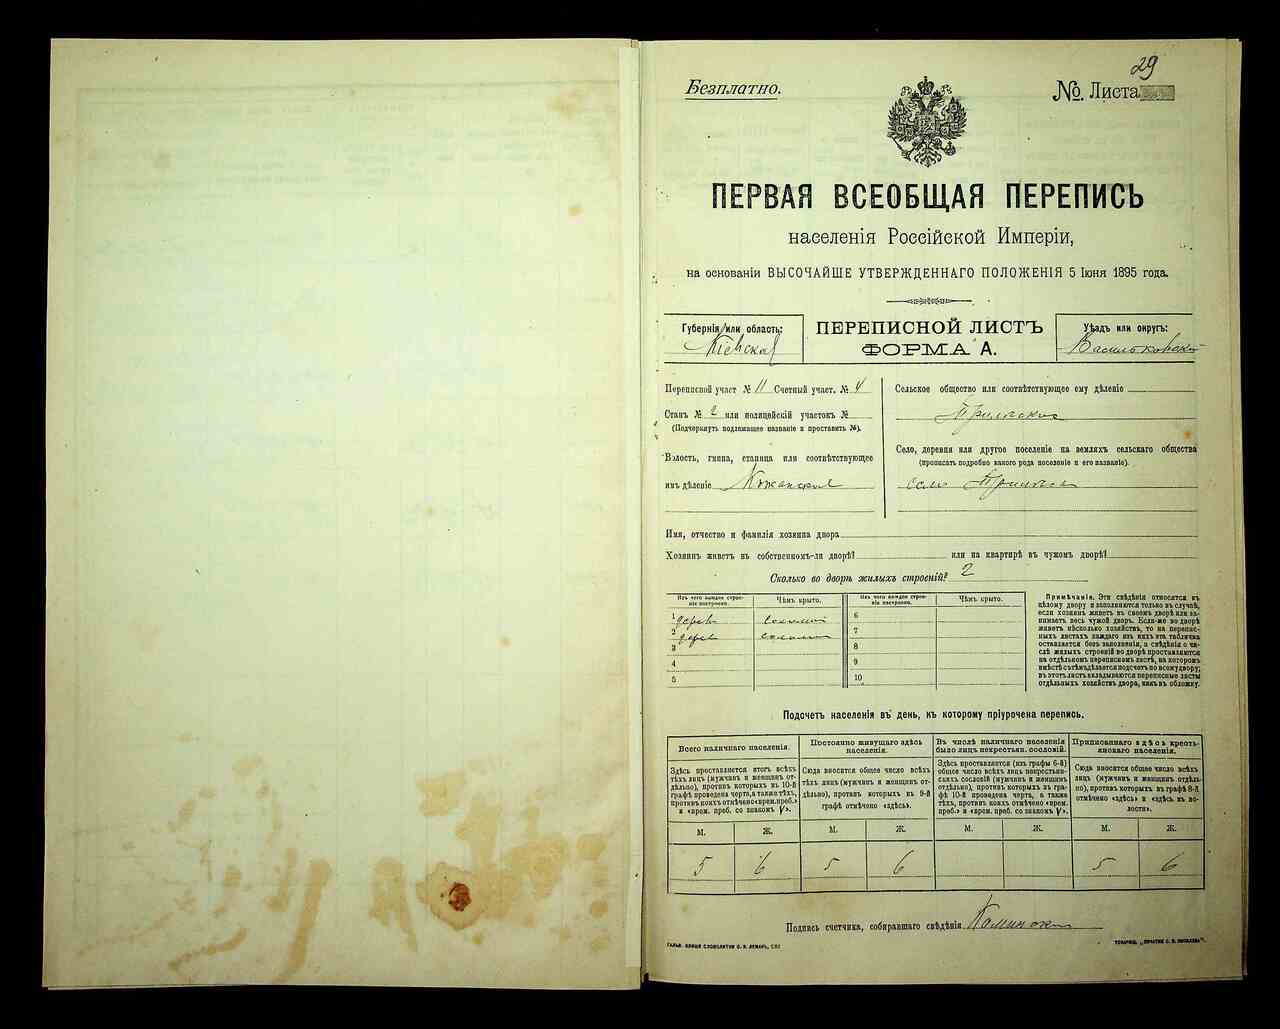 29
Безплатно.
№. Листа
ПЕРВАЯ ВСЕОБЩАЯ ПЕРЕПИСЬ
населенія Россійской Имперіи,
на основаніи ВЫСОЧАЙШЕ УТВЕРЖДЕННАГО ПОЛОЖЕНІЯ 5 Іюня 1895 года.
Губернія или область:
Кіевская
ПЕРЕПИСНОЙ ЛИСТЪ
ФОРМА А.
Уѣздъ или округъ:
Васильковскій
Переписной участ № 11 Счетный участ. № 4
Станъ № 2 или полицейскій участокъ №
(Подчеркнуть подлежащее названіе и проставить №).
Волость, гмина, станица или соотвѣтствующее
имъ дѣленіе Кожанская
Сельское общество или соотвѣтствующее ему дѣленіе
Село, деревня или другое поселеніе на земляхъ сельскаго общества
(прописать подробно какого рода поселеніе и его названіе).
село
Имя, отчество и фамилія хозяина двора
Хозяинъ живетъ въ собственномъ-ли дворѣ? или на квартирѣ въ чужомъ дворѣ?
Сколько во дворѣ жилыхъ строеній? 2
Изъ чего каждое строе-
ніе построено.
Чѣмъ крыто.
Изъ чего каждое строе-
ніе построено.
Чѣмъ крыто.
1 дерев соломой
2 дерев соломой
3
4
5
6
7
8
9
10
Примѣчаніе. Эти свѣдѣнія относятся къ
цѣлому двору и заполняются только въ случаѣ,
если хозяинъ живетъ въ своемъ дворѣ или за-
нимаетъ весь чужой дворъ. Если-же во дворѣ
живетъ нѣсколько хозяйствъ, то на перепис-
ныхъ листахъ каждаго изъ нихъ эта табличка
оставляется безъ заполненія, а свѣдѣнія о чи-
слѣ жилыхъ строеній во дворѣ проставляются
на отдѣльномъ переписномъ листѣ, на которомъ
вмѣстѣ съ тѣмъ дѣлается подсчетъ по всему двору;
въ этотъ листъ вкладываются переписные листы
отдѣльныхъ хозяйствъ двора, какъ въ обложку.
Подсчетъ населенія въ день, къ которому пріурочена перепись.
Всего наличнаго населенія.
Здѣсь проставляется итогъ всѣхъ
тѣхъ лицъ (мужчинъ и женщинъ от-
дѣльно), противъ которыхъ въ 10-й
графѣ проведена черта, а также тѣхъ,
противъ коихъ отмѣчено «врем. преб.»
и «врем. преб. со знакомъ V».
Постоянно живущаго здѣсь
населенія.
Сюда вносится общее число всѣхъ
тѣхъ лицъ (мужчинъ и женщинъ от-
дѣльно), противъ которыхъ въ 9-й
графѣ отмѣчено «здѣсь».
Въ числѣ наличнаго населенія
было лицъ некрестьян. сословій.
Здѣсь проставляется (изъ графы 6-й)
общее число всѣхъ лицъ некрестьян-
скихъ сословій (мужчинъ и женщинъ
отдѣльно), противъ которыхъ въ гра-
фѣ 10-й проведена черта, а также
тѣхъ, противъ коихъ отмѣчено «врем.
преб.» и «врем. преб. со знакомъ V».
Приписаннаго здѣсь кресть-
янскаго населенія.
Сюда вносится общее число всѣхъ
лицъ (мужчинъ и женщинъ отдѣль-
но), противъ которыхъ въ графѣ 8-й
отмѣчено «здѣсь» и «здѣсь въ во-
лости».
М. Ж. М. Ж. М. Ж. М. Ж.
5 6 5 6 5 6
Подпись счетчика, собиравшаго свѣдѣнія